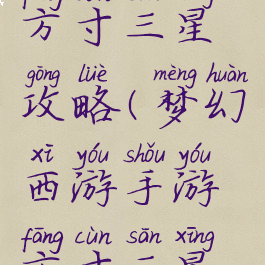 方寸三星
gōng lüè mèng huàn
攻略(梦幻
xī yóu shǒu yóu
西游手游
fāng cùn sān xīng
方寸三星